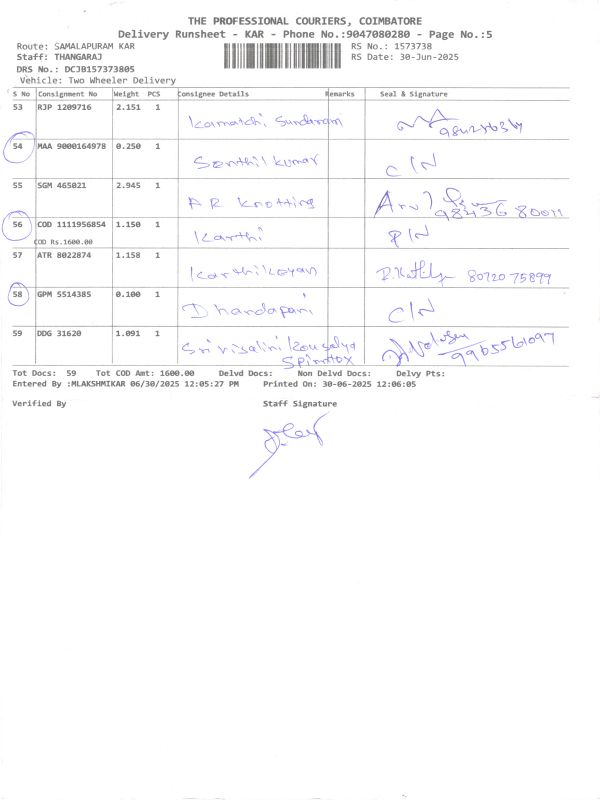 THE PROFESSIONAL COURIERS, COIMBATORE
Delivery Runsheet - KAR - Phone No.:9047080280 - Page No.:5
Route: SAMALAPURAM KAR RS No.: 1573738
Staff: THANGARAJ RS Date: 30-Jun-2025
DRS No.: DCJB157373805
Vehicle: Two Wheeler Delivery
S No Consignment No Weight PCS Consignee Details Remarks Seal & Signature
53 RJP 1209716 2.151 1 Kamatchi Sundaram
54 MAA 9000164978 0.250 1 Senthil kumar C/N
55 SGM 465021 2.945 1 AR Knotting 98436 80011
56 COD 1111956854 1.150 1 Karthi
COD Rs.1600.00
57 ATR 8022874 1.158 1 Karthikeyan 80720 75899
58 GPM 5514385 0.100 1 Dhandapani C/N
59 DDG 31620 1.091 1 Srivisalini Kousalya 9965561097
Spinntex
Tot Docs: 59 Tot COD Amt: 1600.00 Delvd Docs: Non Delvd Docs: Delvy Pts:
Entered By :MLAKSHMIKAR 06/30/2025 12:05:27 PM Printed On: 30-06-2025 12:06:05
Verified By Staff Signature